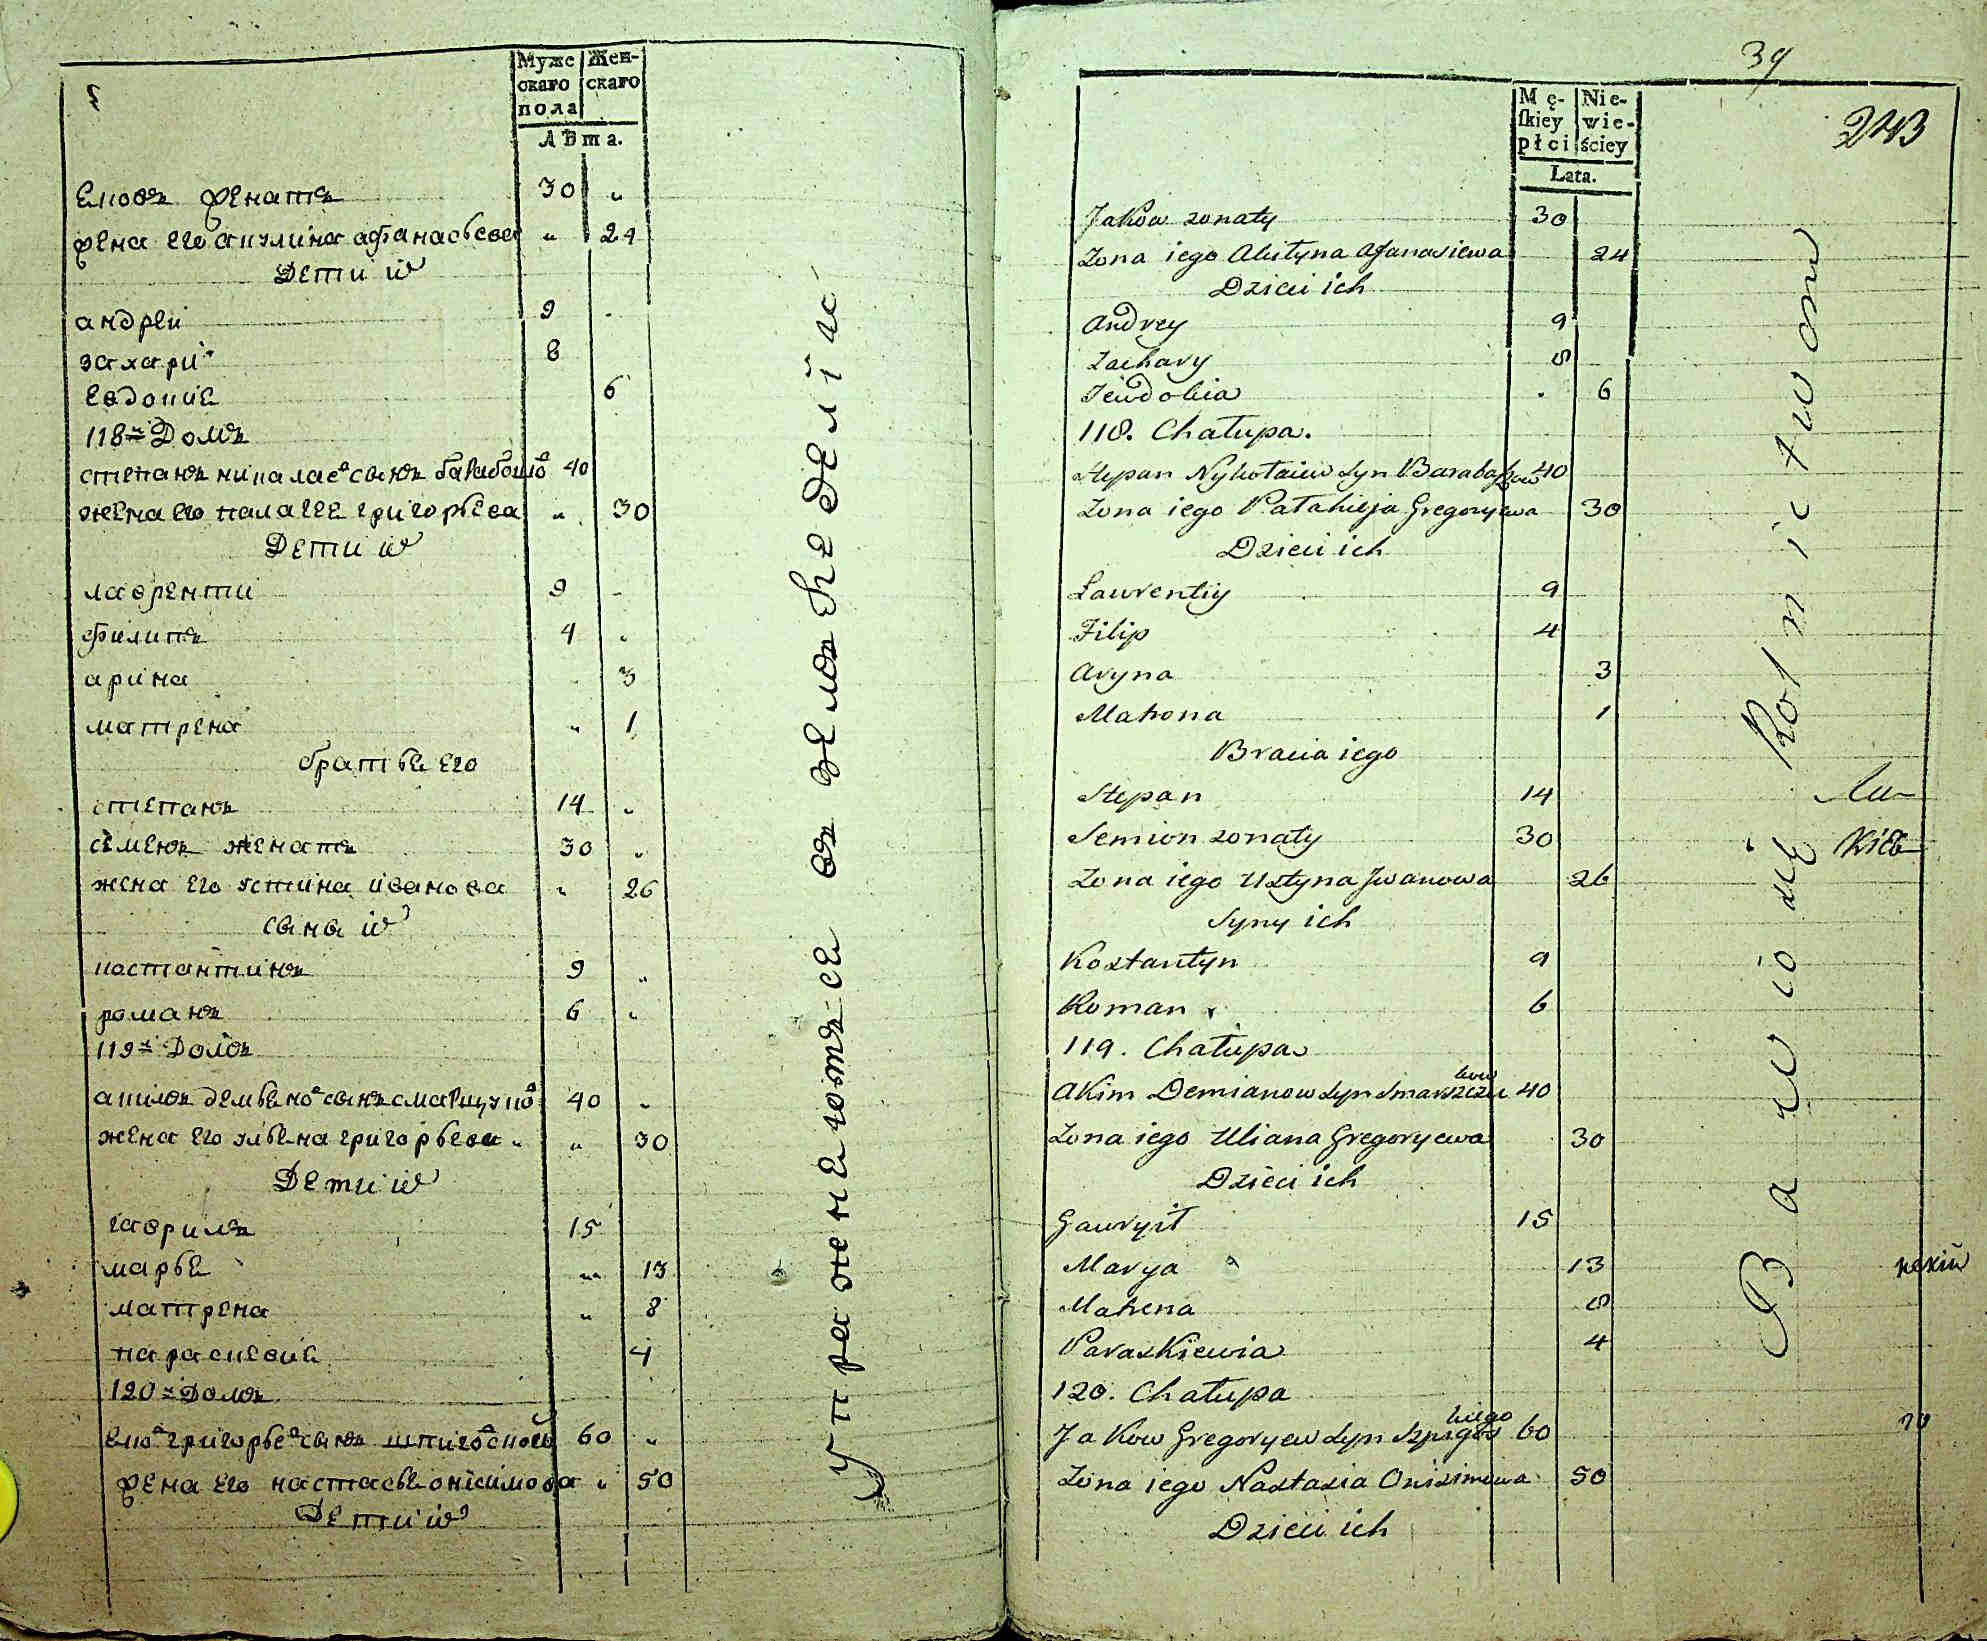 Муже
скаго
пола
Жен-
скаго
Лѣта.
ековъ женатъ 30 „
жена его акулина афанасьева „ 24
Дети их
андреи 9
захари 8
евдокие 6
118 Домъ
степанъ никалаев сынъ 40
жена его палагее григорьева „ 30
Дети их
лавренти 9
филипъ 4 „
арина 3
матрена „ 1
братье его
степанъ 14 „
семенъ женатъ 30 „
жена его устина иванова „ 26
сыны их
костантинъ 9 „
романъ 6 „
119 Домъ
акимъ демьенов сынъ 40 „
жена его ульена григорьева „ 30
Дети их
гаврилъ 15
марье „ 13
матрена „ 8
параскевие 4
120 Домъ
еков григорьев сынъ 60 „
жена его настасье онисимова „ 50
Дети их
упражнеютъ-се въ земъ
39
243
Mę-
skiey
płci
Nie-
wie-
ściey
Lata.
Jakow zonaty 30
Zona iego Akulyna Afanasiewa 24
Dzieci ich
Andrey 9
Zachary 8
Jewdokia 6
118. Chałupa.
Stepan Nykołaiew syn Barabaszow 40
Zona iego Pałahieja Gregoryewa 30
Dzieci ich
Ławrentiy 9
Filip 4
Aryna 3
Matrona 1
Bracia iego
Stepan 14
Semion zonaty 30
Zona iego Ustyna Jwanowa 26
Syny ich
Kostantyn 9
Roman 6
119. Chałupa
Akim Demianow syn 40
Zona iego Uliana Gregoryewa 30
Dzieci ich
Gawryił 15
Marya 13
Matrena 8
Paraskiewia 4
120. Chałupa
Jakow Gregoryew syn 60
Zona iego Nastasia Onisimowa 50
Dzieci ich
Bawio się Rolnictwom